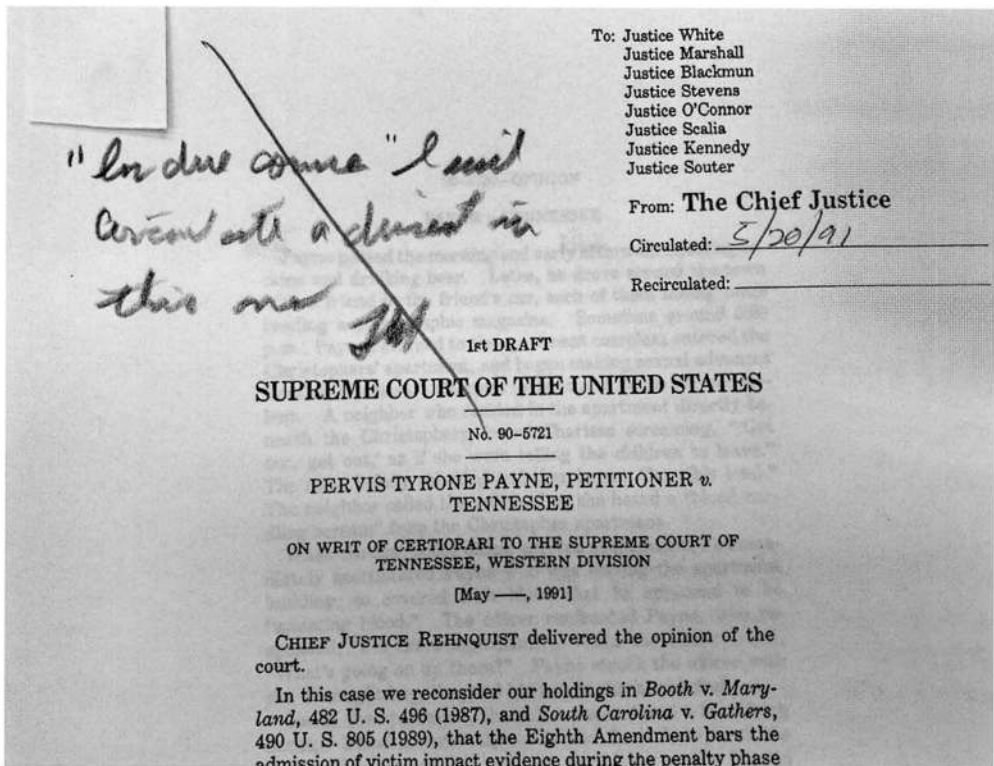 To: Justice White
Justice Marshall
Justice Blackmun
Justice Stevens
Justice O'Connor
Justice Scalia
Justice Kennedy
Justice Souter
From: The Chief Justice
Circulated: 5/20/91
Recirculated:
"In due course" I will
circulate a dissent in
this one
1st DRAFT
SUPREME COURT OF THE UNITED STATES
No. 90–5721
PERVIS TYRONE PAYNE, PETITIONER v.
TENNESSEE
ON WRIT OF CERTIORARI TO THE SUPREME COURT OF
TENNESSEE, WESTERN DIVISION
[May ——, 1991]
CHIEF JUSTICE REHNQUIST delivered the opinion of the
court.
In this case we reconsider our holdings in Booth v. Mary-
land, 482 U. S. 496 (1987), and South Carolina v. Gathers,
490 U. S. 805 (1989), that the Eighth Amendment bars the
admission of victim impact evidence during the penalty phase